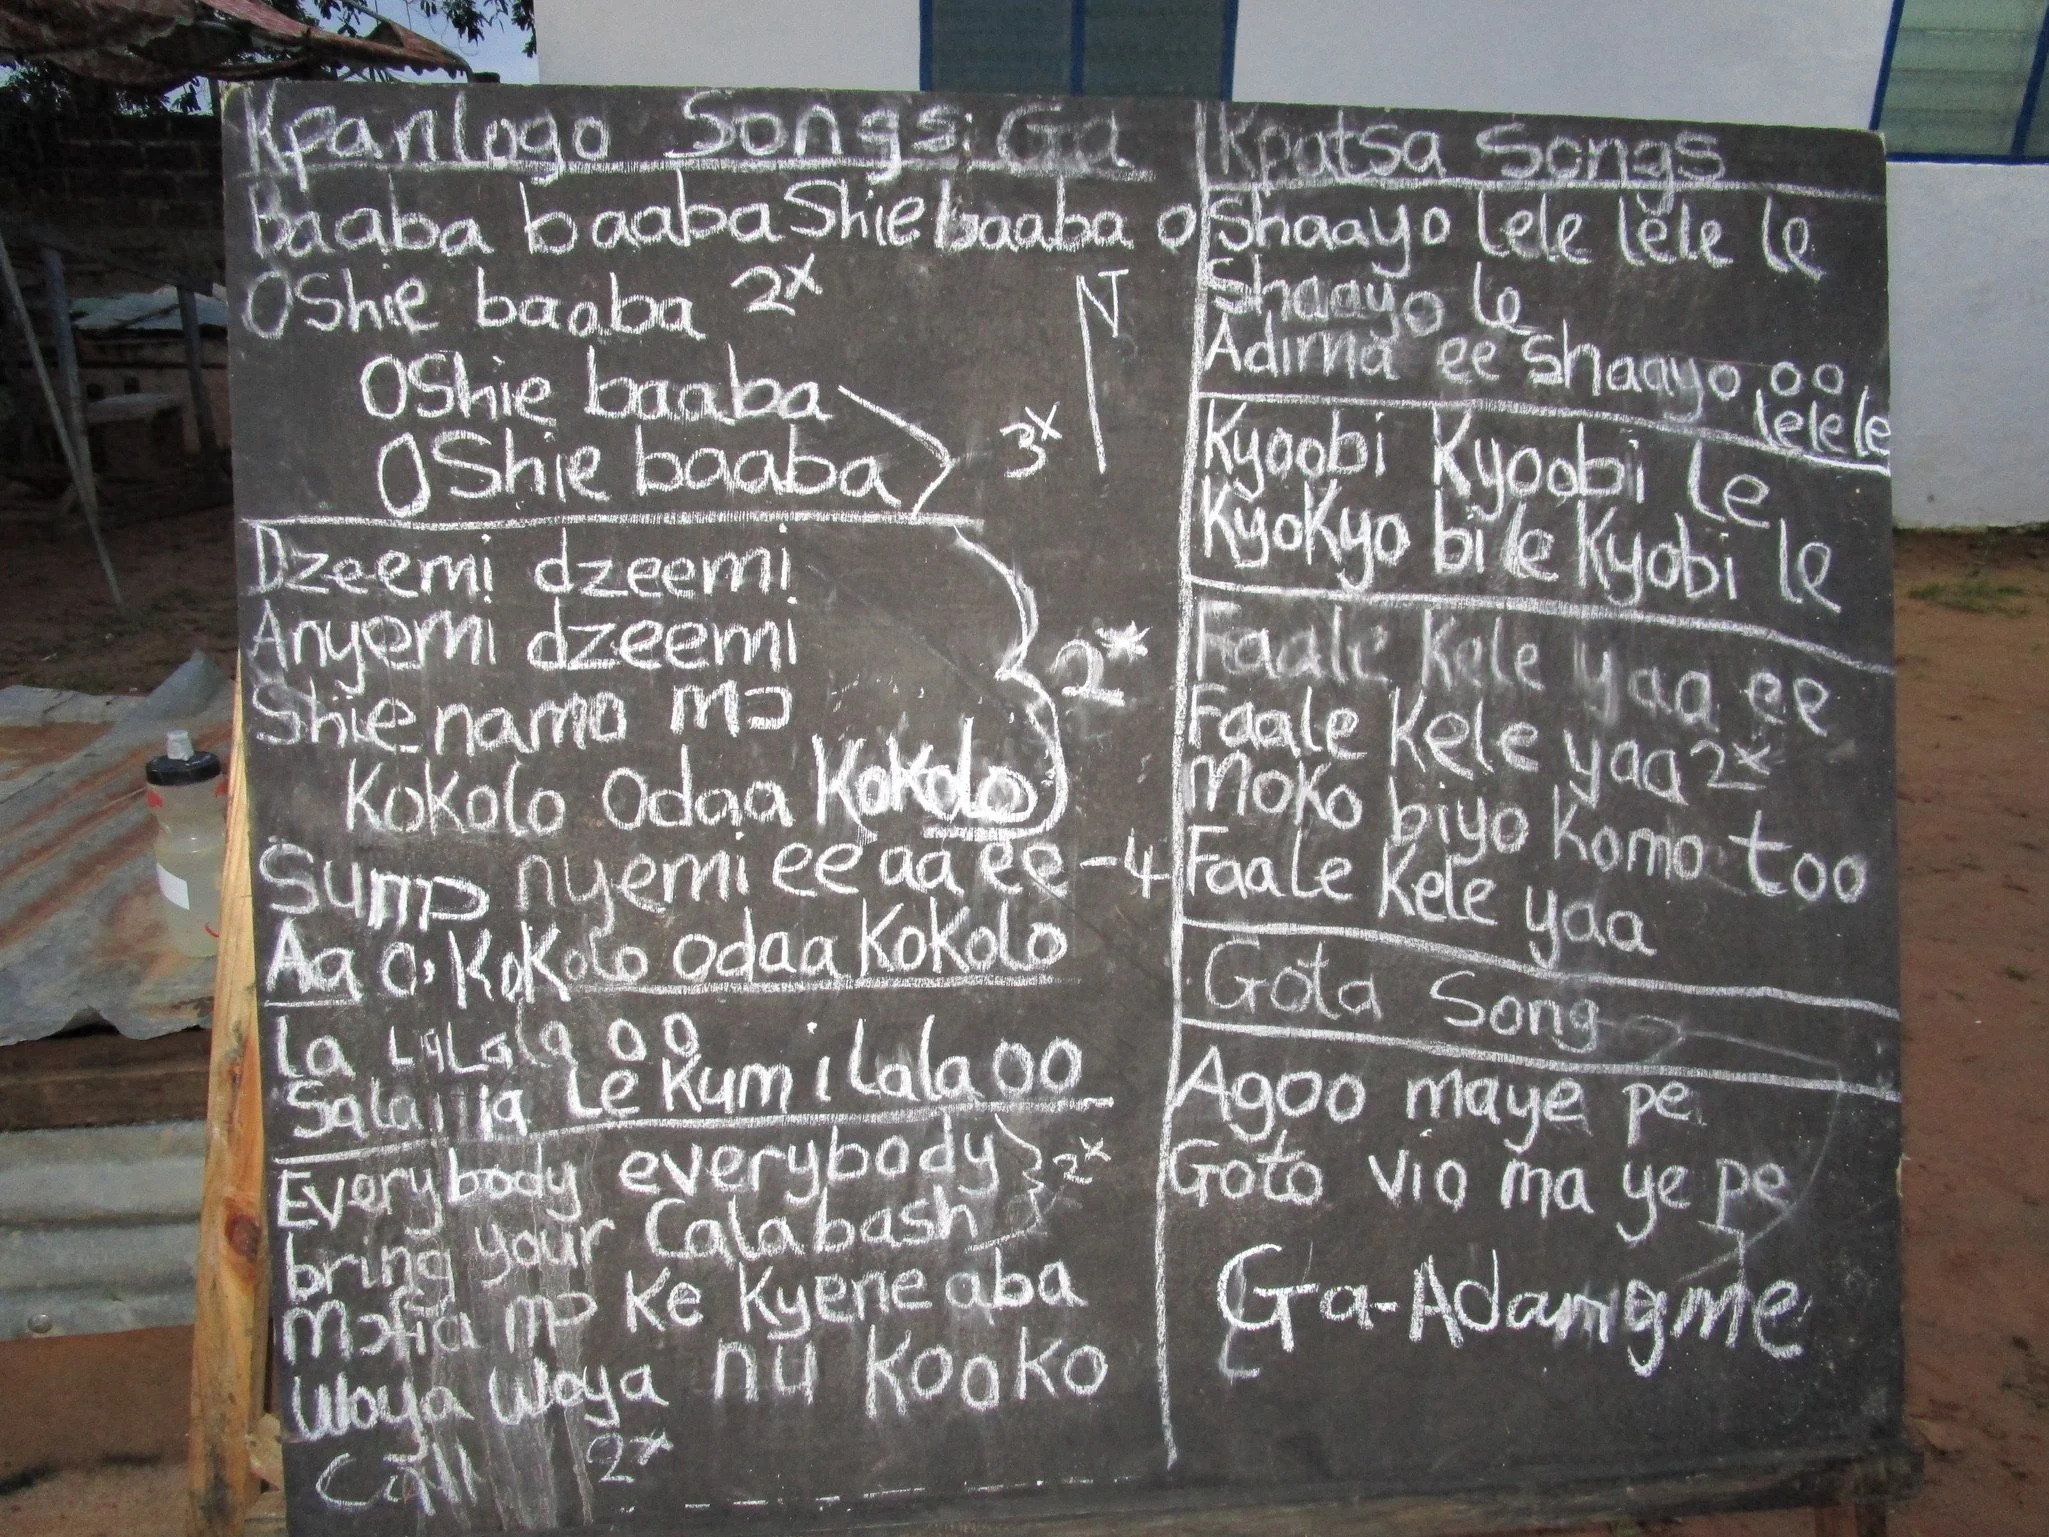 Kpanlogo Songs: Ga
Baaba baaba Shie baaba o
OShie baaba 2x
OShie baaba
OShie baaba
3x
Dzeemi dzeemi
Anyemi dzeemi
Shie namo mɔ
KoKolo Odaa KoKolo
2x
Sumɔ nyemi ee aa ee -4
Aa O, KoKolo odaa KoKolo
La LaLala oo
Le Kum i Lala oo
Everybody everybody
bring your Calabash
2x
Mɔfia mɔ Ke Kyene aba
Waya Waya nu KooKo
Call 2x
Kpatsa Songs
Shaayo lele lele le
Shaayo le
Adima ee Shaayo oo
lelele
Kyoobi Kyoobi le
KyoKyo bi le Kyobi le
Faale Kele yaa ee
Faale Kele yaa 2x
MoKo biyo Komo too
Faale Kele yaa
Gota Song
Agoo maye pe
Goto vio ma ye pe
Ga-Adamgme